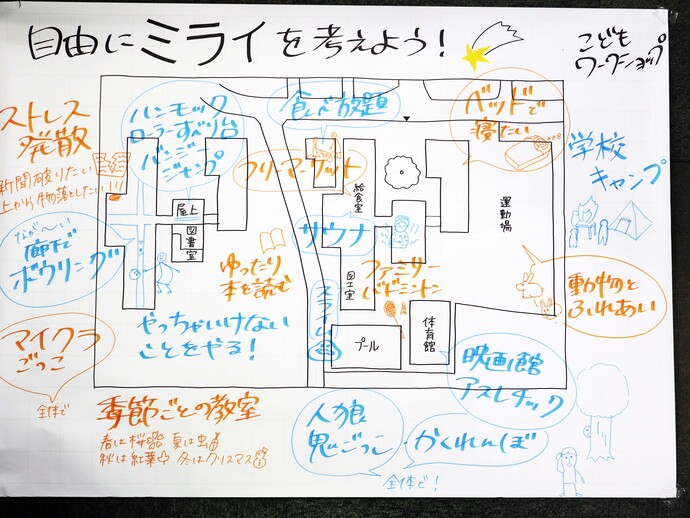 自由にミライを考えよう!
こども
ワークショップ
ストレス
発散
新聞破りたい
上から物落としたい!!!
ハンモック
ローラーすべり台
バンジー
ジャンプ
食べ放題
ベッドで
寝たい
学校
キャンプ
フリーマーケット
給食室
運動場
屋上
図書室
サウナ
なが〜い
廊下で
ボウリング
ゆったり
本を読む
図工室
ファミリー
バドミントン
動物と
ふれあい
スライム
やっちゃいけない
ことをやる!
マイクラ
ごっこ
全体で
プール
体育館
映画館
アスレチック
季節ごとの教室
春は桜 夏は虫
秋は紅葉 冬はクリスマス
人狼
鬼ごっこ
かくれんぼ
全体で!